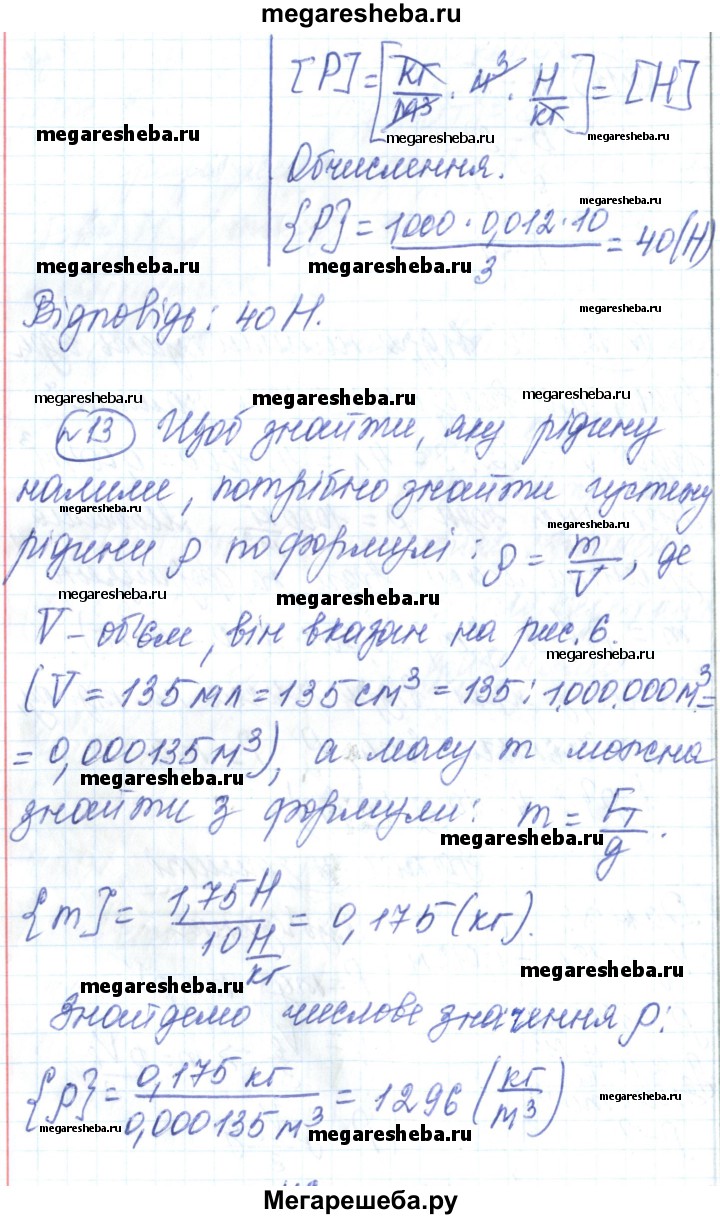 megaresheba.ru
[P] = [кг/м3 · м3 · Н/кг] = [Н]
megaresheba.ru megaresheba.ru megaresheba.ru
Обчислення.
megaresheba.ru
{P} = 1000 · 0,012 · 10 / 3 = 40(Н)
megaresheba.ru megaresheba.ru
Відповідь: 40 Н.
megaresheba.ru
megaresheba.ru megaresheba.ru megaresheba.ru
№13 Щоб знайти, яку рідину
налили, потрібно знайти густину
megaresheba.ru megaresheba.ru
рідини ρ по формулі: ρ = m/V, де
megaresheba.ru megaresheba.ru
V – об'єм, він вказан на рис. 6.
megaresheba.ru
(V = 135 мл = 135 см3 = 135 : 1.000.000 м3 =
= 0,000135 м3), а масу m можна
megaresheba.ru
знайти з формули: m = Fт/g.
megaresheba.ru
{m} = 1,75 Н / 10 Н/кг = 0,175 (кг).
megaresheba.ru megaresheba.ru
Знайдемо числове значення ρ:
{ρ} = 0,175 кг / 0,000135 м3 = 1296 (кг/м3)
megaresheba.ru megaresheba.ru megaresheba.ru
Мегарешеба.ру